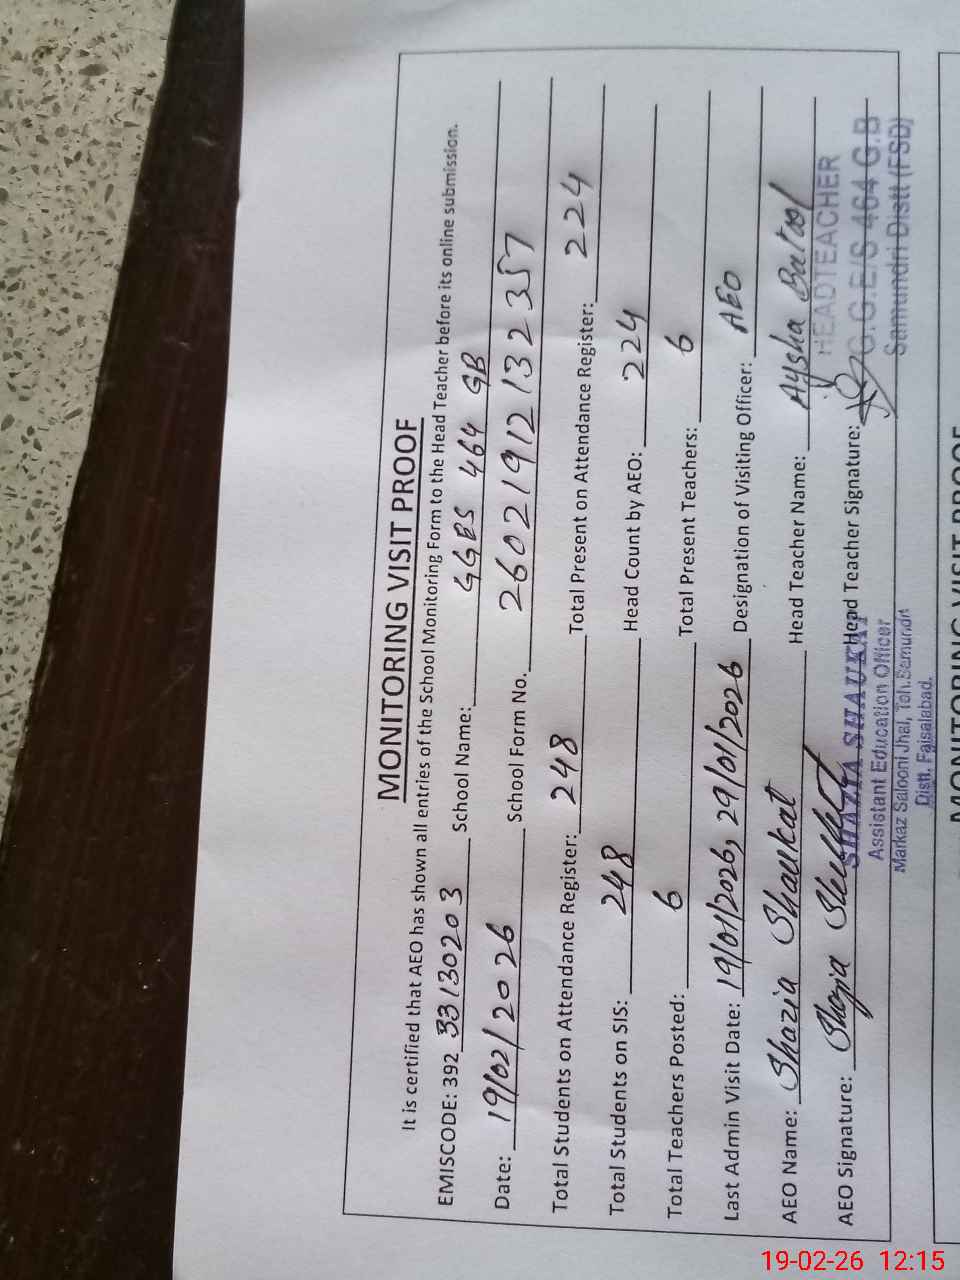 MONITORING VISIT PROOF
It is certified that AEO has shown all entries of the School Monitoring Form to the Head Teacher before its online submission.
EMISCODE: 392 33130203 School Name: GGES 464 GB
Date: 19/02/2026 School Form No. 2602191213 2357
Total Students on Attendance Register: 248 Total Present on Attendance Register: 224
Total Students on SIS: 248 Head Count by AEO: 224
Total Teachers Posted: 6 Total Present Teachers: 6
Last Admin Visit Date: 19/01/2026, 29/01/2026 Designation of Visiting Officer: AEO
AEO Name: Shazia Shaukat Head Teacher Name: Aysha Batool
AEO Signature: Shazia Shaukat Head Teacher Signature:
SHAZIA SHAUKAT
Assistant Education Officer
Markaz Salooni Jhal, Teh.Samundri
Distt. Faisalabad.
HEADTEACHER
G.G.E/S 464 G.B
Samundri Distt (FSD)
MONITORING VISIT PROOF
19-02-26 12:15